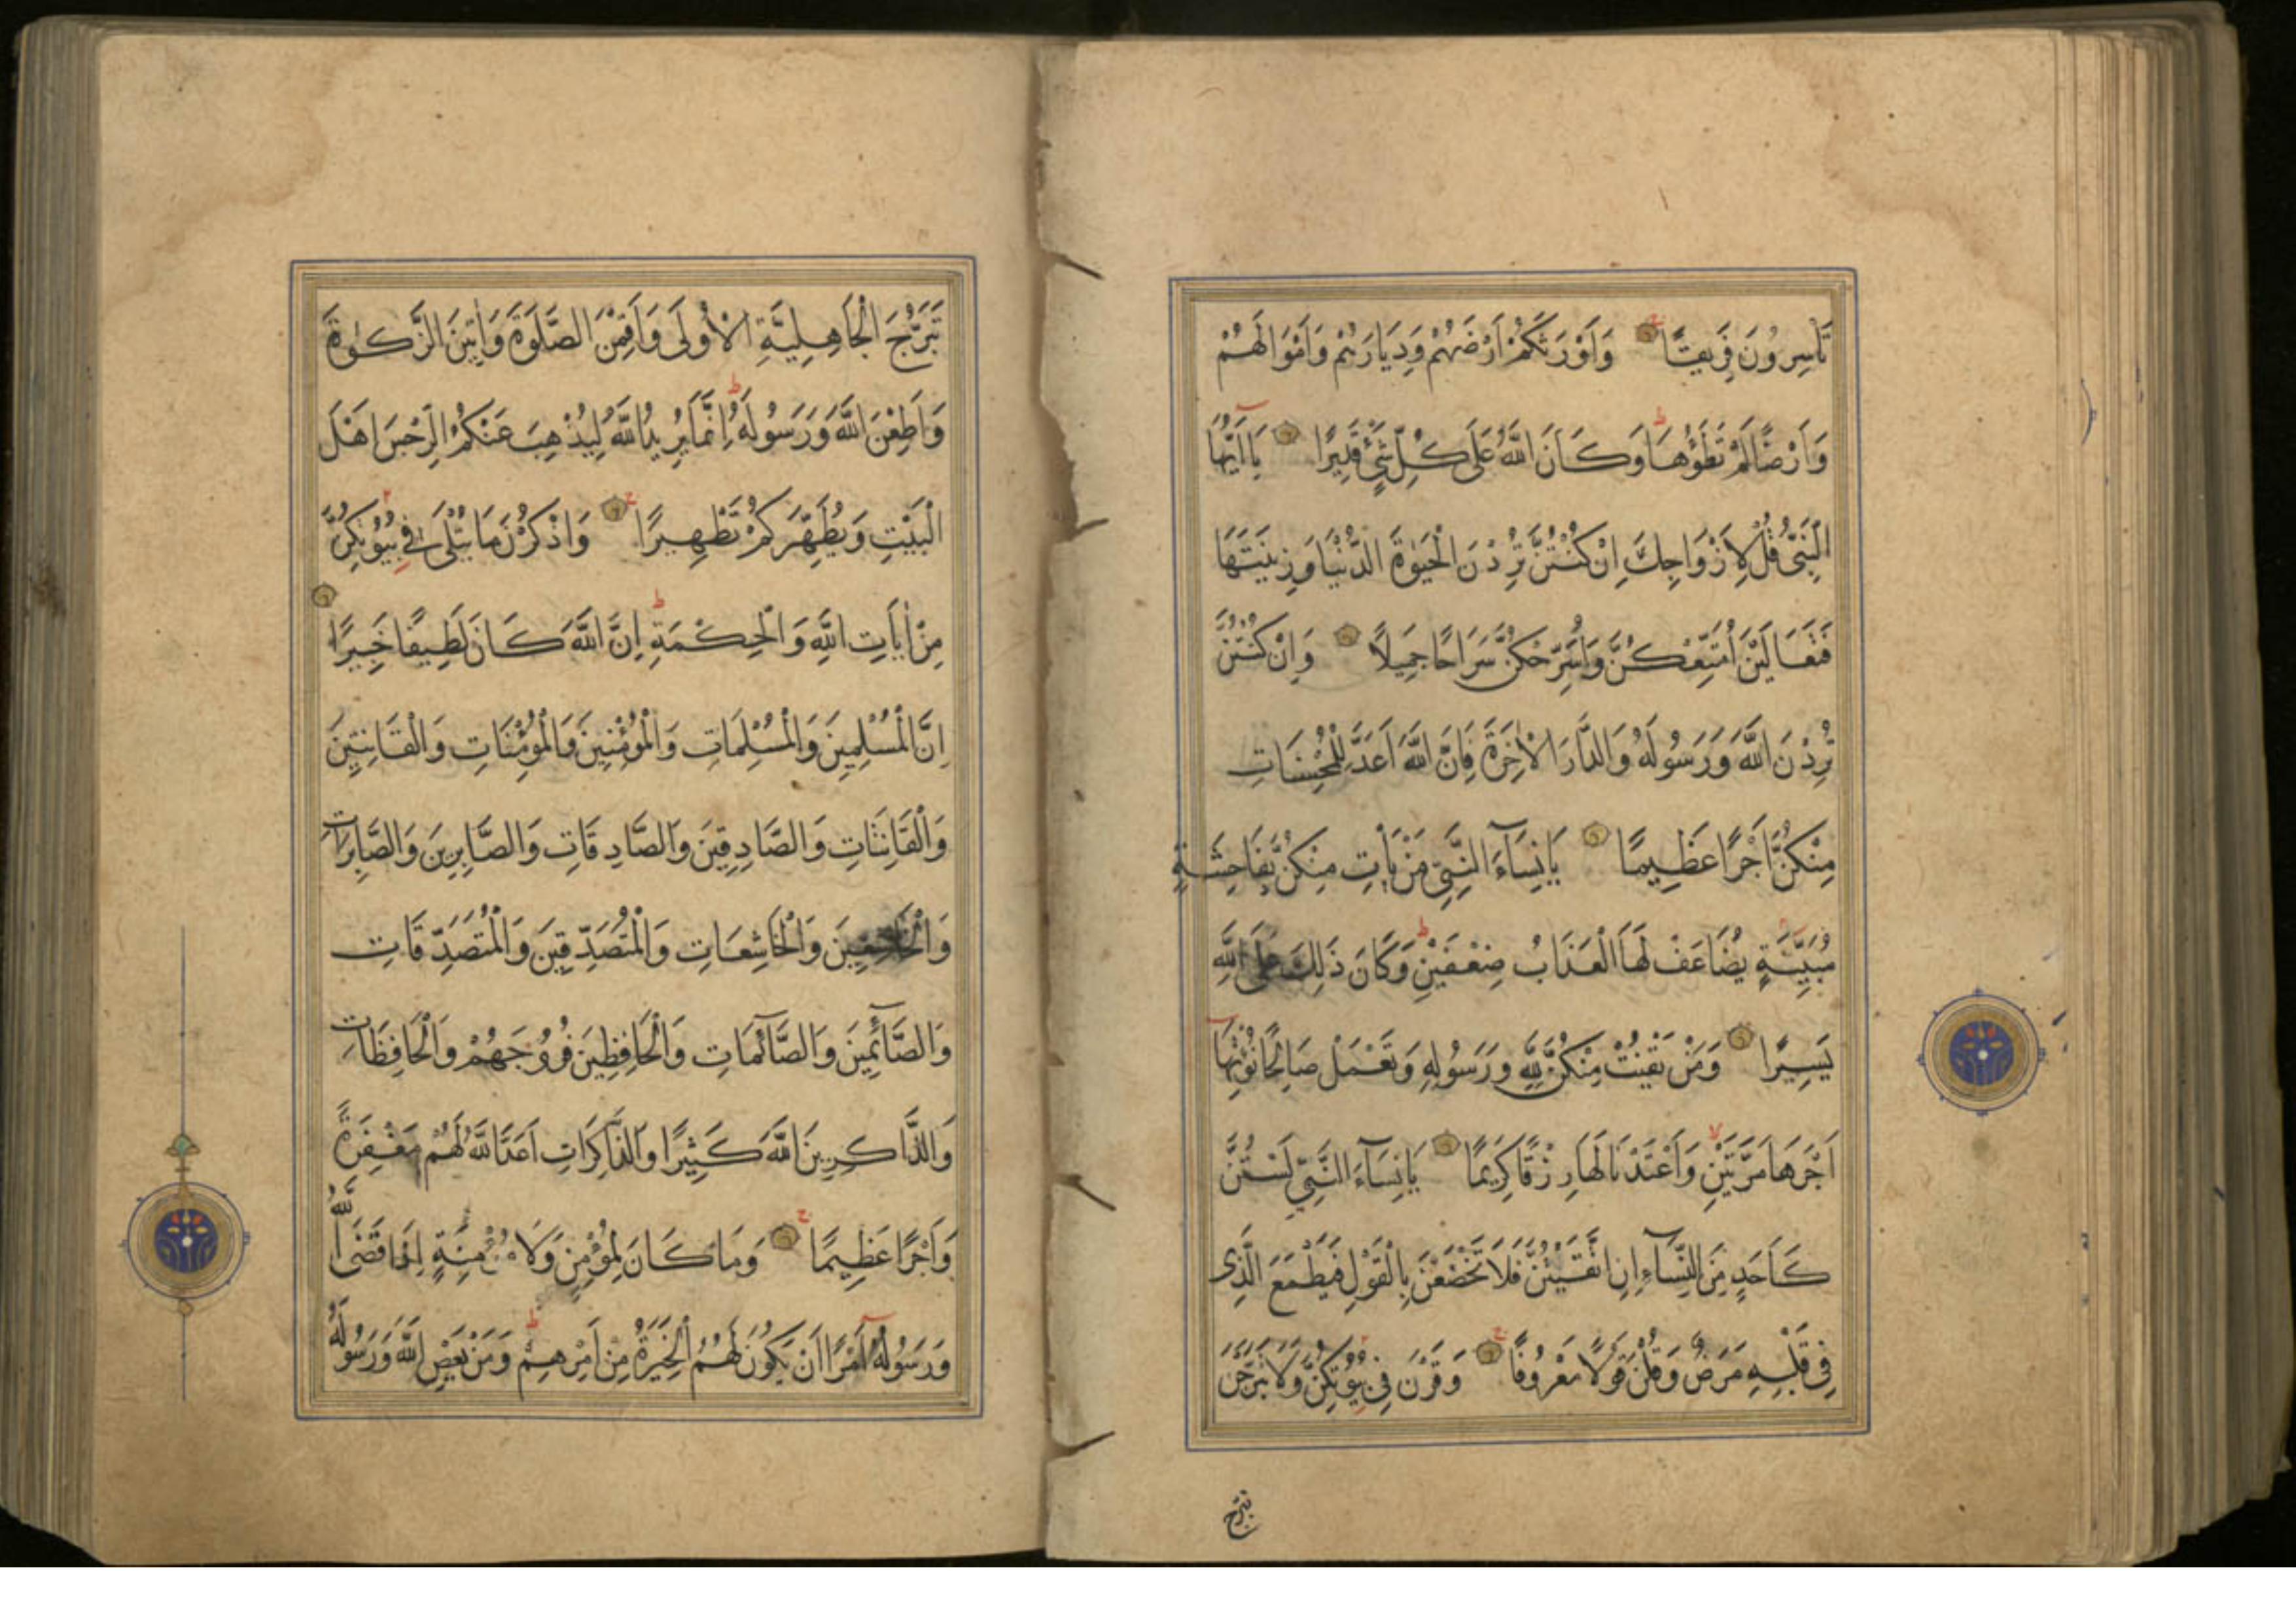 تَأْسِرُونَ فَرِيقًا وَأَوْرَثَكُمْ أَرْضَهُمْ وَدِيَارَهُمْ وَأَمْوَالَهُمْ
وَأَرْضًا لَمْ تَطَؤُهَا وَكَانَ اللَّهُ عَلَى كُلِّ شَيْءٍ قَدِيرًا يَا أَيُّهَا
النَّبِيُّ قُلْ لِأَزْوَاجِكَ إِنْ كُنْتُنَّ تُرِدْنَ الْحَيٰوةَ الدُّنْيَا وَزِينَتَهَا
فَتَعَالَيْنَ أُمَتِّعْكُنَّ وَأُسَرِّحْكُنَّ سَرَاحًا جَمِيلًا وَإِنْ كُنْتُنَّ
تُرِدْنَ اللَّهَ وَرَسُولَهُ وَالدَّارَ الْاٰخِرَةَ فَإِنَّ اللَّهَ أَعَدَّ لِلْمُحْسِنَاتِ
مِنْكُنَّ أَجْرًا عَظِيمًا يَا نِسَآءَ النَّبِيِّ مَنْ يَأْتِ مِنْكُنَّ بِفَاحِشَةٍ
مُبَيِّنَةٍ يُضَاعَفْ لَهَا الْعَذَابُ ضِعْفَيْنِ وَكَانَ ذَلِكَ عَلَى اللَّهِ
يَسِيرًا وَمَنْ يَقْنُتْ مِنْكُنَّ لِلَّهِ وَرَسُولِهِ وَتَعْمَلْ صَالِحًا نُؤْتِهَا
أَجْرَهَا مَرَّتَيْنِ وَأَعْتَدْنَا لَهَا رِزْقًا كَرِيمًا يَا نِسَآءَ النَّبِيِّ لَسْتُنَّ
كَأَحَدٍ مِنَ النِّسَآءِ إِنِ اتَّقَيْتُنَّ فَلَا تَخْضَعْنَ بِالْقَوْلِ فَيَطْمَعَ الَّذِي
فِي قَلْبِهِ مَرَضٌ وَقُلْنَ قَوْلًا مَعْرُوفًا وَقَرْنَ فِي بُيُوتِكُنَّ وَلَا تَبَرَّجْنَ
تبرج
تَبَرُّجَ الْجَاهِلِيَّةِ الْأُولَى وَأَقِمْنَ الصَّلَوٰةَ وَاٰتِينَ الزَّكَوٰةَ
وَأَطِعْنَ اللَّهَ وَرَسُولَهُ إِنَّمَا يُرِيدُ اللَّهُ لِيُذْهِبَ عَنْكُمُ الرِّجْسَ أَهْلَ
الْبَيْتِ وَيُطَهِّرَكُمْ تَطْهِيرًا وَاذْكُرْنَ مَا يُتْلَى فِي بُيُوتِكُنَّ
مِنْ اٰيَاتِ اللَّهِ وَالْحِكْمَةِ إِنَّ اللَّهَ كَانَ لَطِيفًا خَبِيرًا
إِنَّ الْمُسْلِمِينَ وَالْمُسْلِمَاتِ وَالْمُؤْمِنِينَ وَالْمُؤْمِنَاتِ وَالْقَانِتِينَ
وَالْقَانِتَاتِ وَالصَّادِقِينَ وَالصَّادِقَاتِ وَالصَّابِرِينَ وَالصَّابِرَاتِ
وَالْخَاشِعِينَ وَالْخَاشِعَاتِ وَالْمُتَصَدِّقِينَ وَالْمُتَصَدِّقَاتِ
وَالصَّآئِمِينَ وَالصَّآئِمَاتِ وَالْحَافِظِينَ فُرُوجَهُمْ وَالْحَافِظَاتِ
وَالذَّاكِرِينَ اللَّهَ كَثِيرًا وَالذَّاكِرَاتِ أَعَدَّ اللَّهُ لَهُمْ مَغْفِرَةً
وَأَجْرًا عَظِيمًا وَمَا كَانَ لِمُؤْمِنٍ وَلَا مُؤْمِنَةٍ إِذَا قَضَى اللَّهُ
وَرَسُولُهُ أَمْرًا أَنْ يَكُونَ لَهُمُ الْخِيَرَةُ مِنْ أَمْرِهِمْ وَمَنْ يَعْصِ اللَّهَ وَرَسُولَهُ